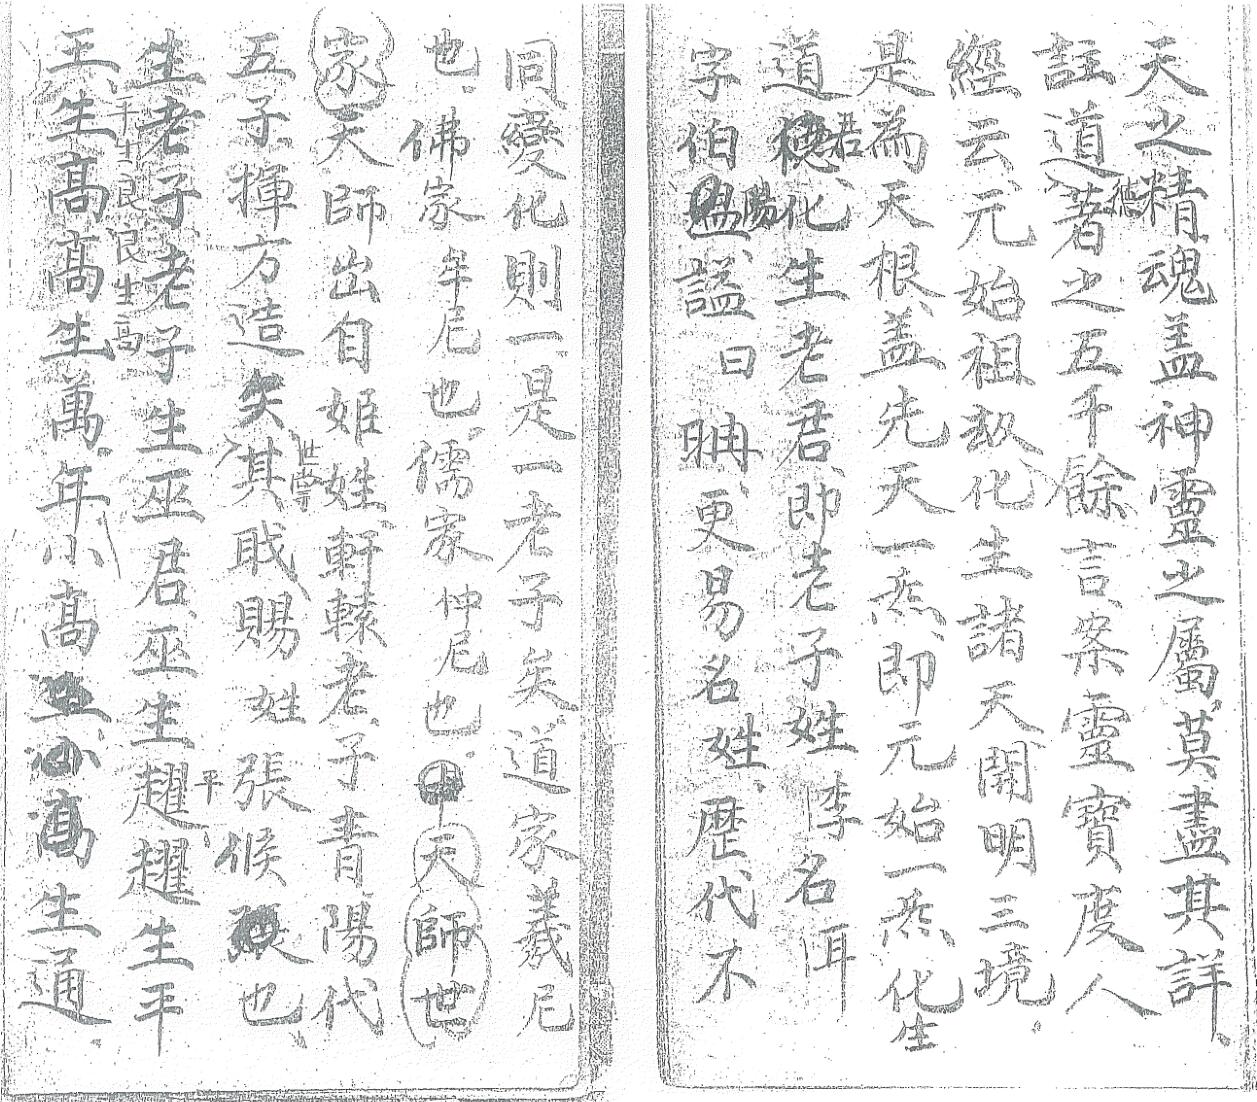 天之精魂盖神靈之屬莫盡其詳
註道德著之五千餘言案靈寶度人
經云元始祖炁化生諸天開明三境
是為天根盖先天一炁即元始一炁化生
道君化生老君即老子姓李名洱
字伯陽謚曰聃更易名姓歷代不
同變化則一是一老子矣道家羲尼
也佛家牟尼也儒家仲尼也天師世
家天師出自姬姓軒轅老子青陽代
五子揮方造矢其世掌職賜姓張候也
生老子老子生巫君巫生趯趯生平
平生良良生高
王生高高生萬年小高高生通